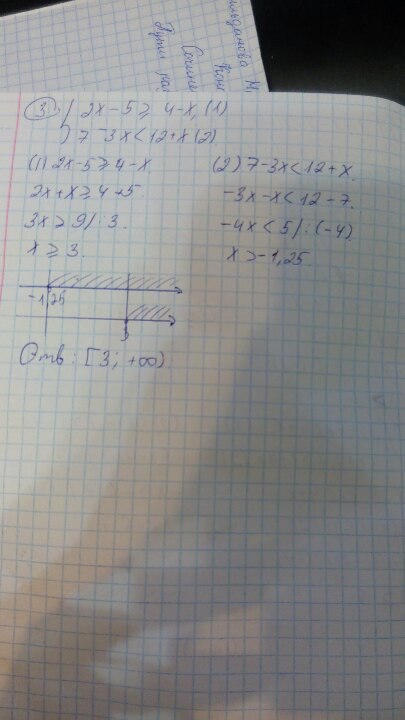 ильданова М.
Кон
Сочине
③ { 2x-5 ⩾ 4-x, (1)
7-3x<12+x (2)
(1) 2x-5⩾4-x.
2x+x ⩾ 4+5.
3x > 9 | : 3.
x ⩾ 3.
(2) 7-3x<12+x.
-3x-x<12-7.
-4x<5 | : (-4)
x >-1,25.
-1,25
3
Отв: [3; +∞)